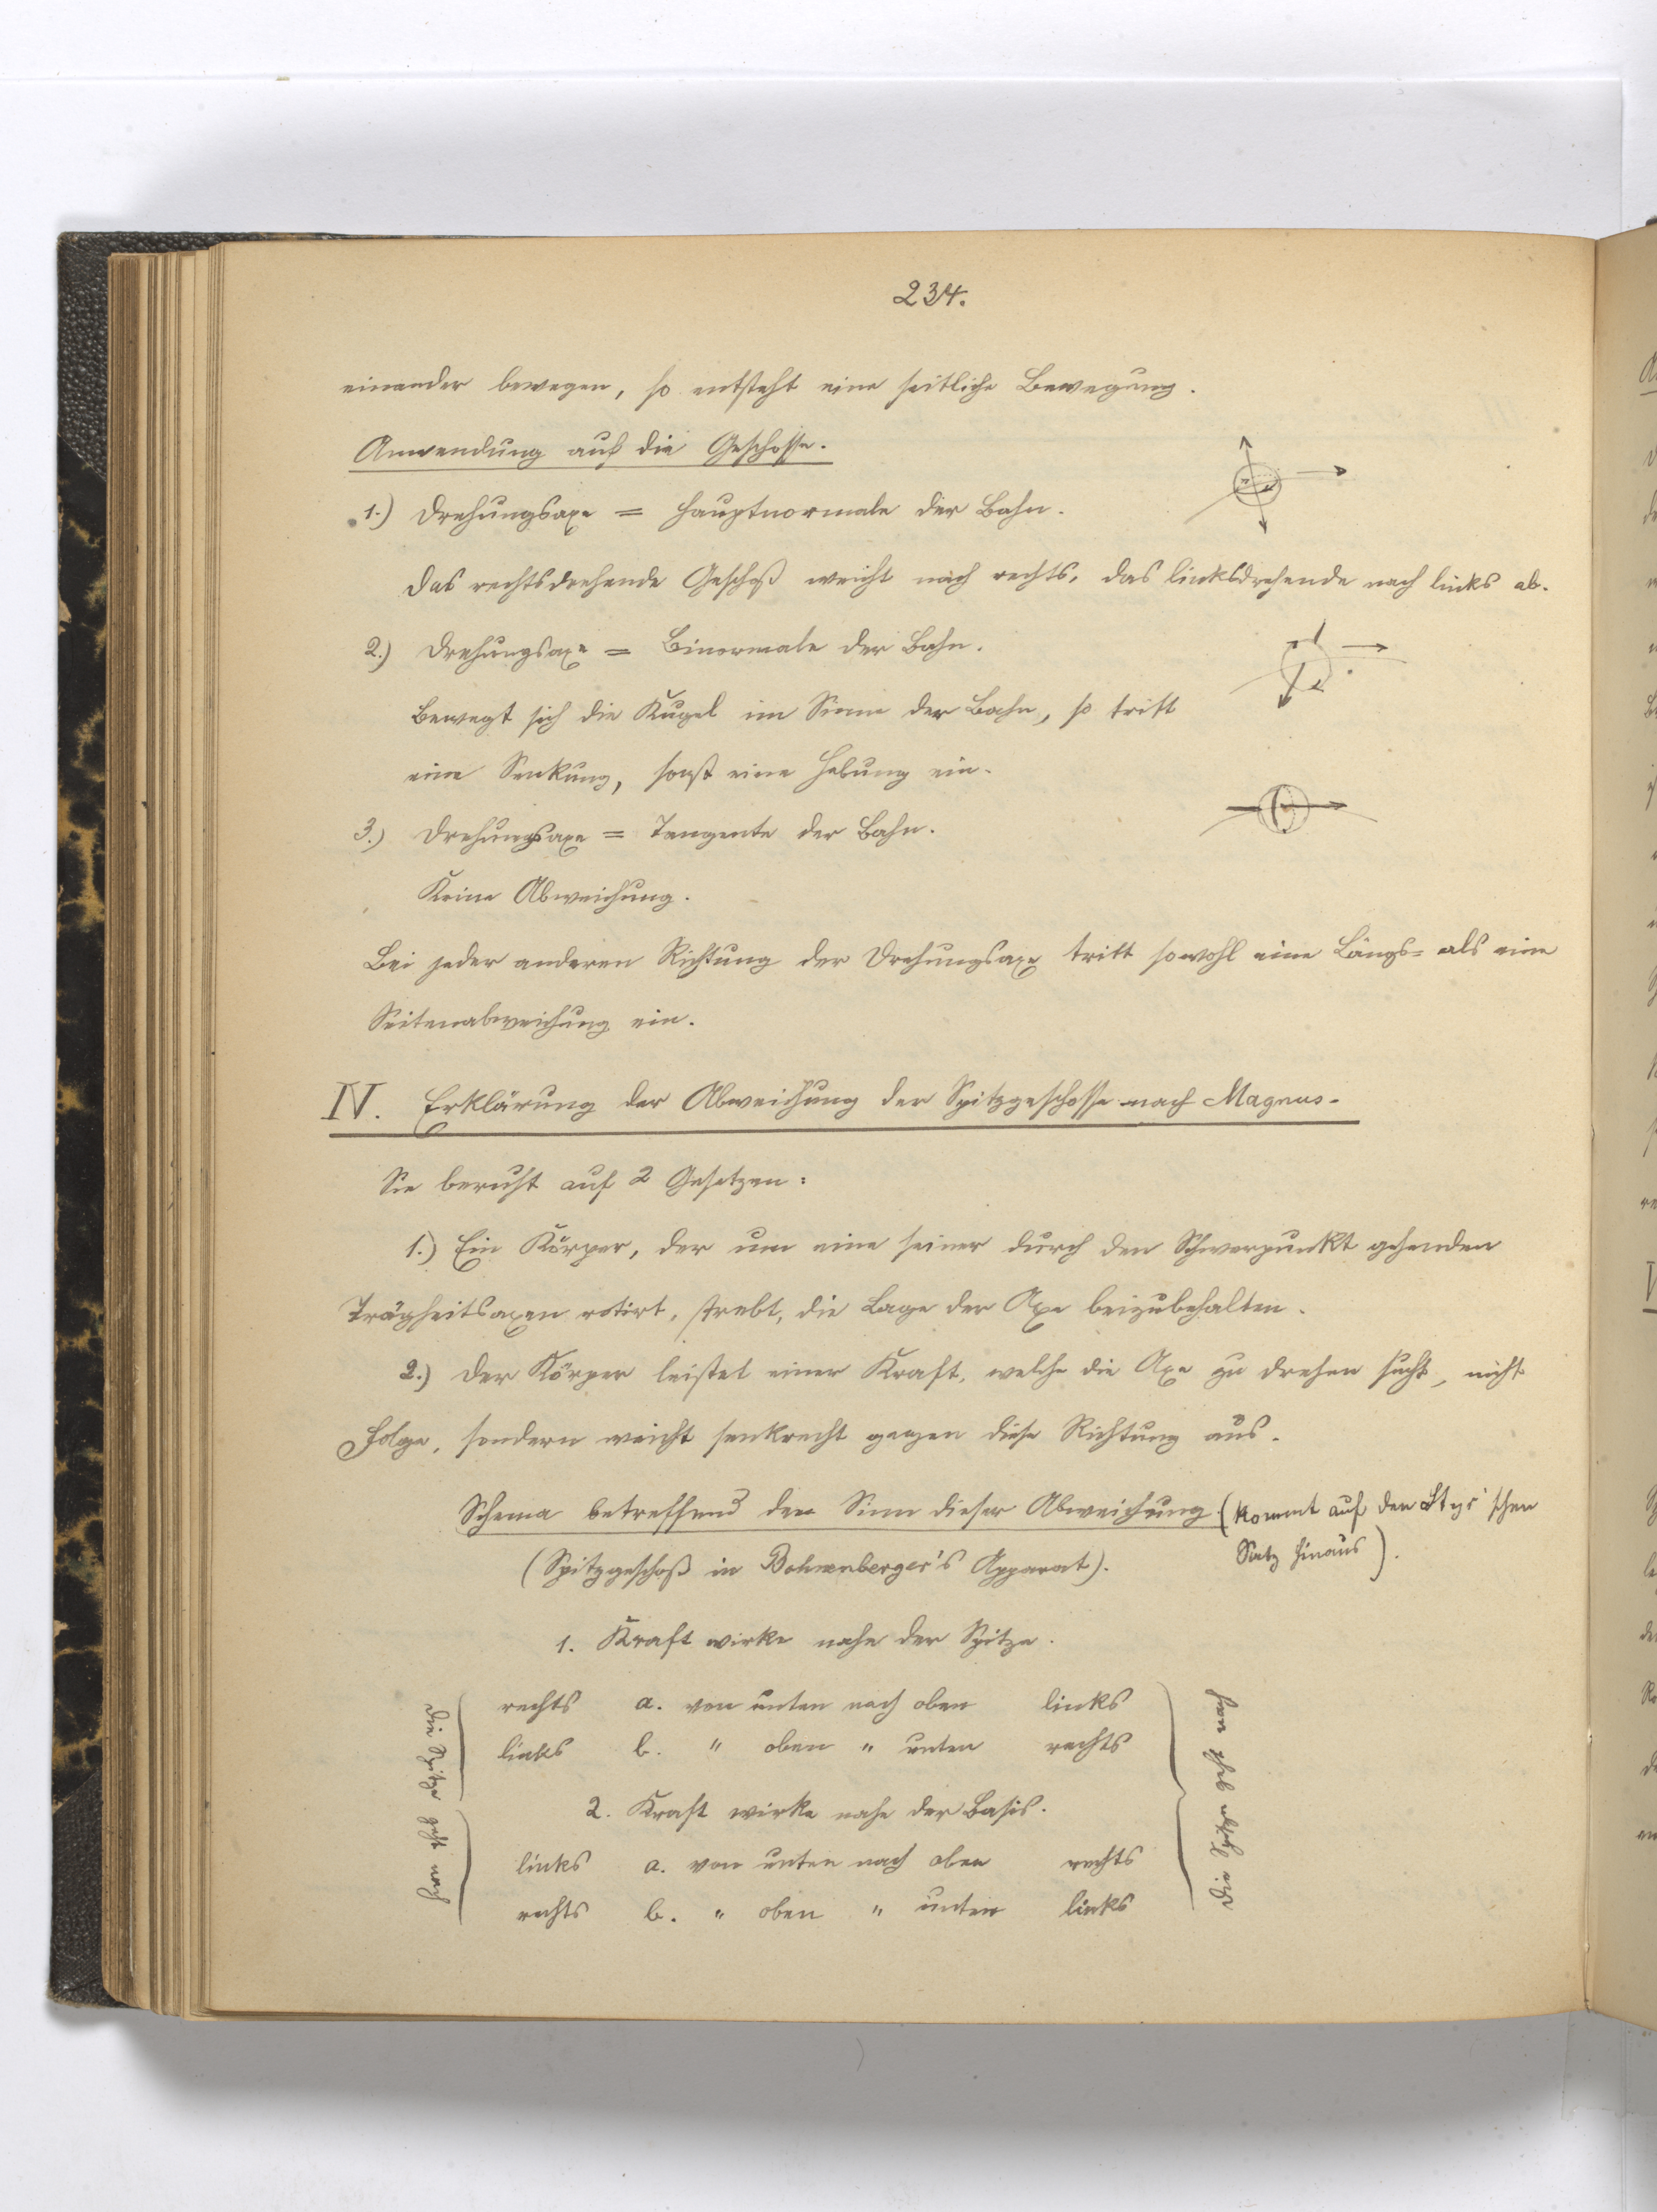 234.
einander bewegen, so entsteht eine seitliche Bewegung.
Anwendung auf die Geschosse.
1.) Drehungsaxe = Hauptnormale der Bahn.
Das rechtsdrehende Geschoß weicht nach rechts, das linksdrehende nach links ab.
2.) Drehungsaxe = Binormale der Bahn.
Bewegt sich die Kugel im Sinne der Bahn, so tritt
eine Senkung, sonst eine Hebung ein.
3.) Drehungsaxe = Tangente der Bahn.
Keine Abweichung.
Bei jeder anderen Richtung der Drehungsaxe tritt sowohl eine Längs= als eine
Seitenabweichung ein.
IV. Erklärung der Abweichung der Spitzgeschosse nach Magnus.
Sie beruht auf 2 Gesetzen:
1.) Ein Körper, der um eine seiner durch den Schwerpunkt gehenden
Trägheitsaxen rotirt, strebt, die Lage der Axe beizubehalten.
2.) Der Körper leistet einer Kraft, welche die Axe zu drehen sucht, nicht
Folge, sondern weicht senkrecht gegen diese Richtung aus.
Schema betreffend den Sinn dieser Abweichung. (kommt auf den schen
(Spitzgeschoß in Bohnenberger's Apparat). Satz hinaus).
1. Kraft wirke nahe der Spitze.
rechts a. von unten nach oben links
links b. " oben " unten rechts
2. Kraft wirke nahe der Basis.
links a. von unten nach oben rechts
rechts b. " oben " unten links
die Spitze geht nach
die Spitze geht nach